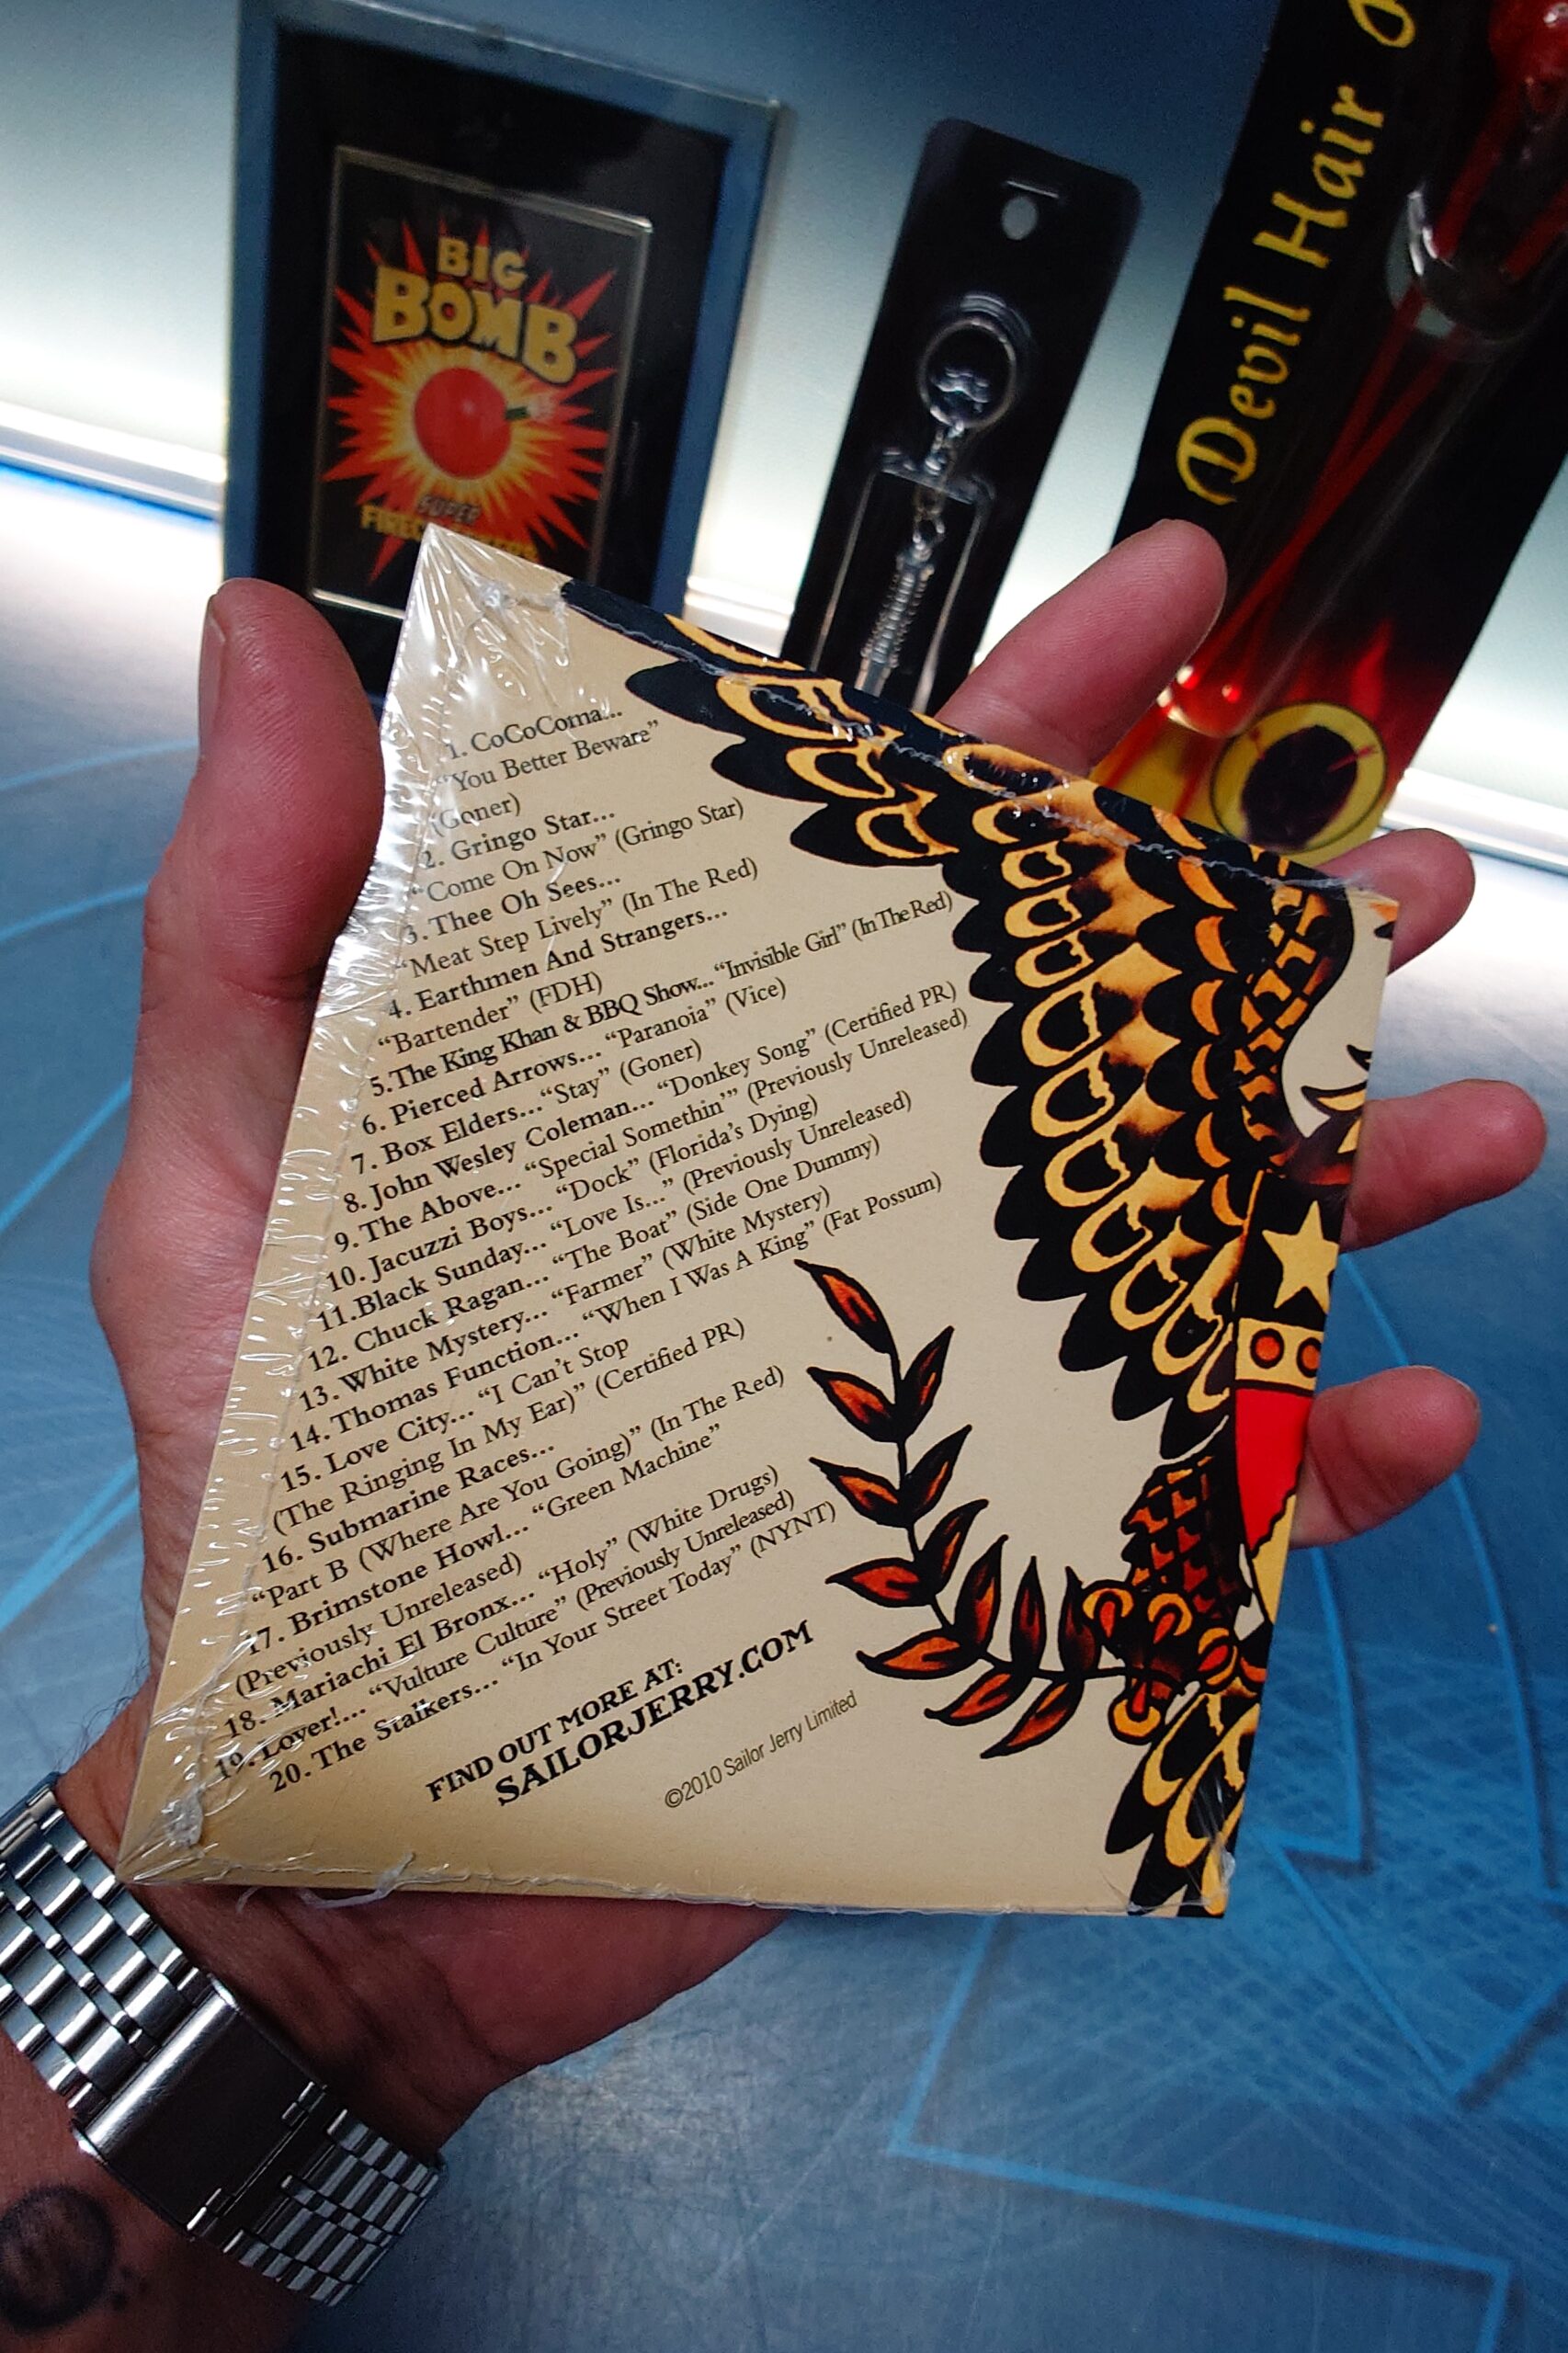 BIG
BOMB
SUPER
Devil Hair
1. CoCoComa...
“You Better Beware”
(Goner)
2. Gringo Star...
“Come On Now” (Gringo Star)
3. Thee Oh Sees...
“Meat Step Lively” (In The Red)
4. Earthmen And Strangers...
“Bartender” (FDH)
5.The King Khan & BBQ Show...“Invisible Girl” (In The Red)
6. Pierced Arrows... “Paranoia” (Vice)
7. Box Elders...“Stay” (Goner)
8. John Wesley Coleman... “Donkey Song” (Certified PR)
9. The Above... “Special Somethin’” (Previously Unreleased)
10. Jacuzzi Boys... “Dock” (Florida’s Dying)
11.Black Sunday... “Love Is...” (Previously Unreleased)
12. Chuck Ragan... “The Boat” (Side One Dummy)
13. White Mystery... “Farmer” (White Mystery)
14. Thomas Function... “When I Was A King” (Fat Possum)
15. Love City... “I Can’t Stop
(The Ringing In My Ear)” (Certified PR)
16. Submarine Races...
“Part B (Where Are You Going)” (In The Red)
17. Brimstone Howl... “Green Machine”
(Previously Unreleased)
18. Mariachi El Bronx... “Holy” (White Drugs)
19. Lover!... “Vulture Culture” (Previously Unreleased)
20. The Stalkers... “In Your Street Today” (NYNT)
FIND OUT MORE AT:
SAILORJERRY.COM
©2010 Sailor Jerry Limited